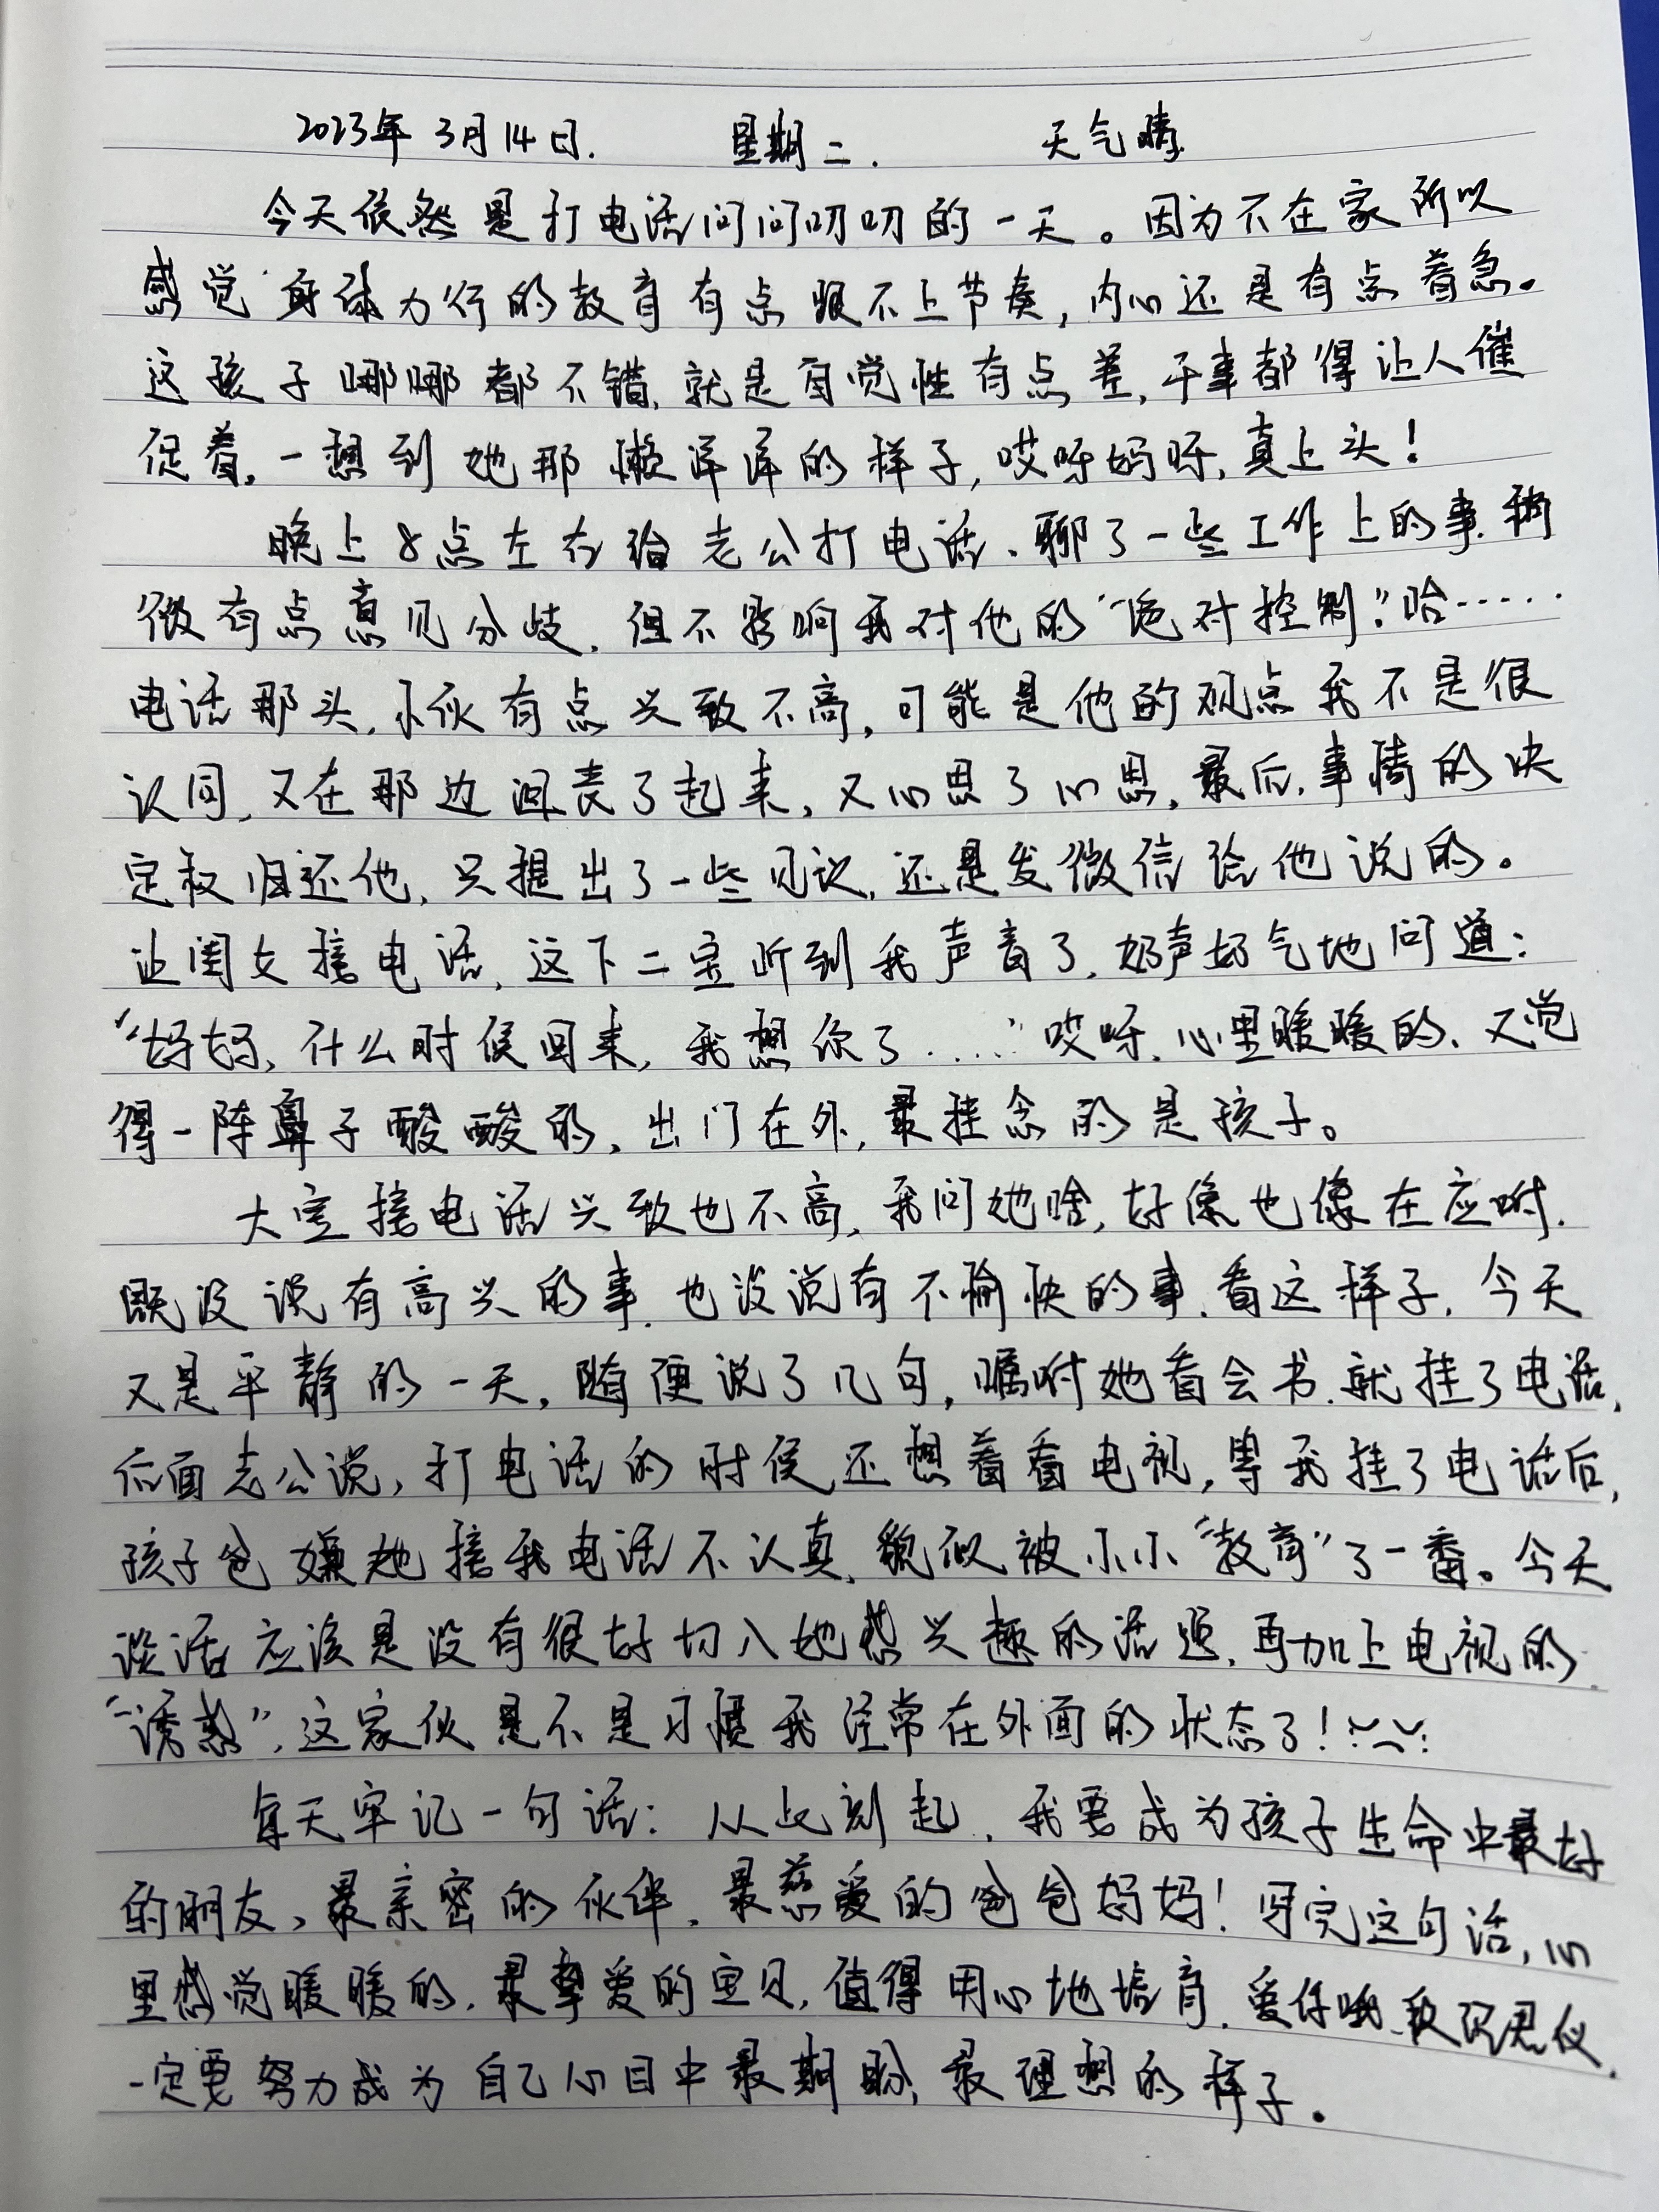 2023年3月14日. 星期二. 天气晴.
今天依然是打电话问问叨叨的一天。因为不在家所以
感觉身体力行的教育有点跟不上节奏,内心还是有点着急。
这孩子哪哪都不错,就是自觉性有点差,干事都得让人催
促着,一想到她那懒洋洋的样子,哎呀妈呀,真上头!
晚上8点左右给老公打电话、聊了一些工作上的事.稍
微有点意见分歧,但不影响我对他的“绝对控制”哈……
电话那头,小伙有点兴致不高,可能是他的观点我不是很
认同,又在那边思了起来,又心思了心思,最后,事情的决
定权归还他,只提出了一些见议,还是发微信给他说的。
让闺女接电话,这下二宝听到我声音了,奶声奶气地问道:
“妈妈,什么时候回来,我想你了……”哎呀,心里暖暖的、又觉
得一阵鼻子酸酸的,出门在外,最挂念的是孩子。
大宝接电话兴致也不高,我问她啥,好像也像在应咐.
既没说有高兴的事.也没说有不愉快的事.看这样子,今天
又是平静的一天,随便说了几句,嘱咐她看会书.就挂了电话,
后面老公说,打电话的时侯还想着看电视,等我挂了电话后,
孩子爸嫌她接我电话不认真,貌似被小小“教育”了一番。今天
谈话应该是没有很好切入她感兴趣的话题,再加上电视的
“诱惑”,这家伙是不是习惯我经常在外面的状态了!
每天牢记一句话:从此刻起,我要成为孩子生命中最好
的朋友、最亲密的伙伴,最慈爱的爸爸妈妈!写完这句话,心
里感觉暖暖的,最挚爱的宝贝,值得用心地培育.
一定要努力成为自己心目中最期盼,最理想的样子。